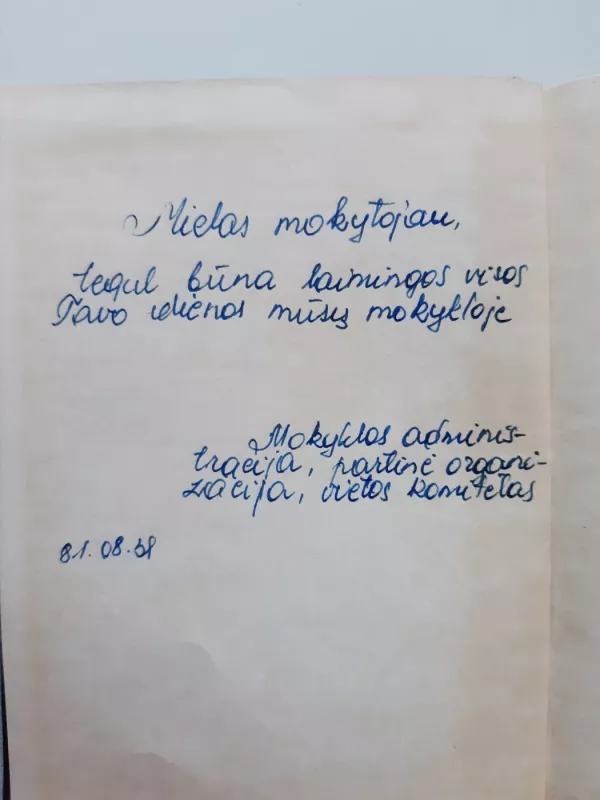 Mielas mokytojau,
tegul būna laimingos visos
Tavo dienos mūsų mokykloje
Mokyklos adminis-
tracija, partinė organi-
zacija, vietos komitetas
81.08.31